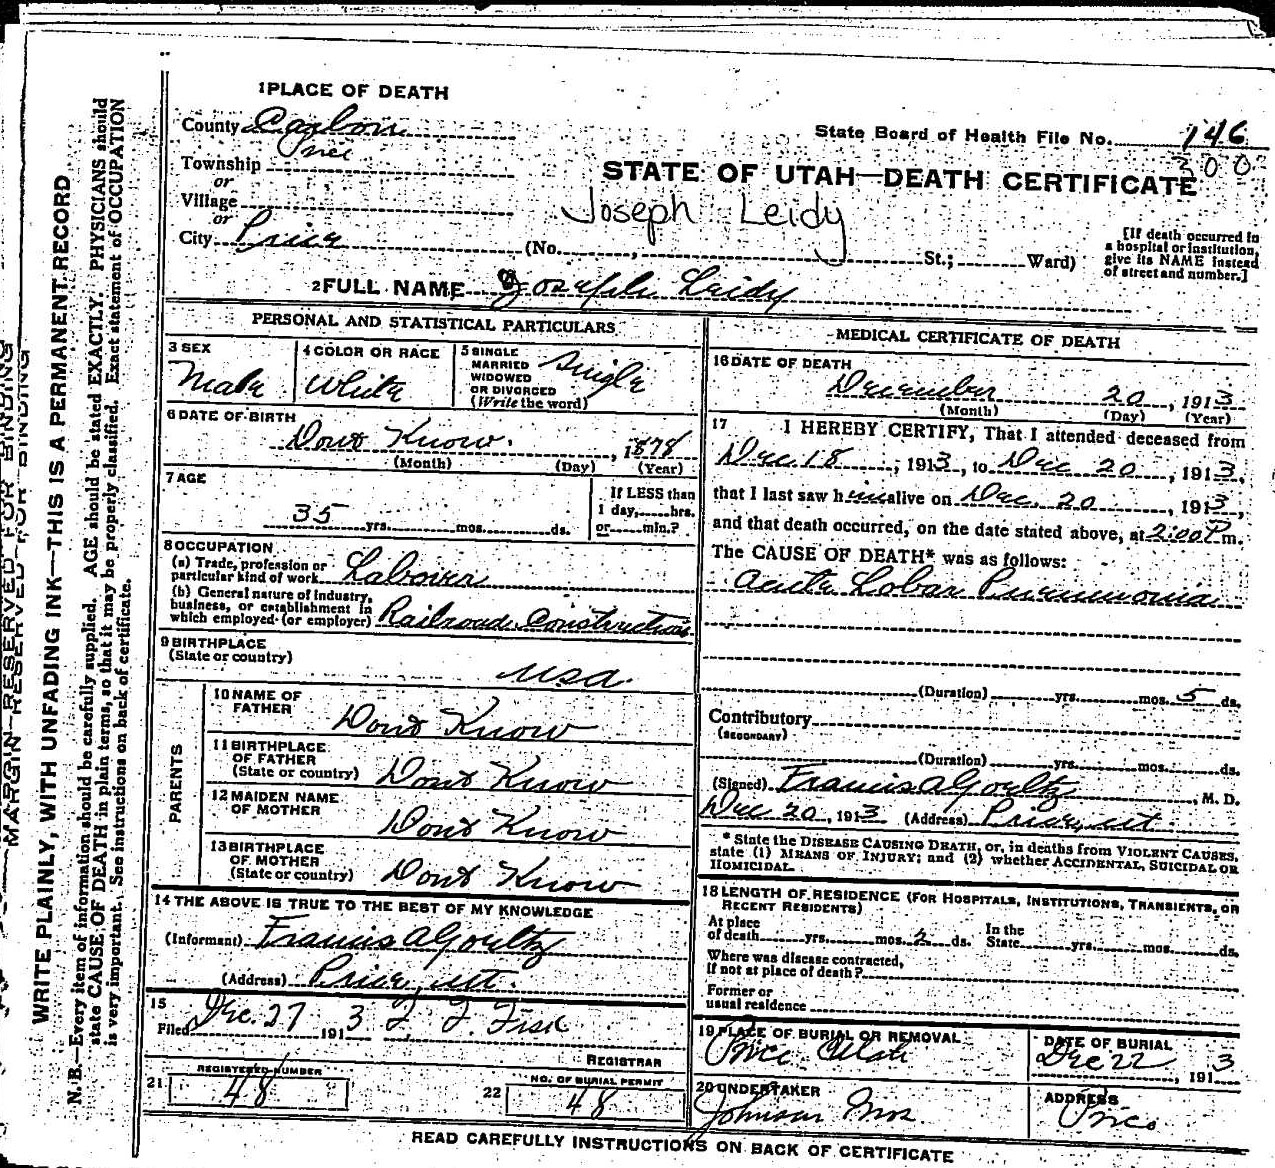 1 PLACE OF DEATH
County Carbon
State Board of Health File No. 146
Price
300
Township
or
STATE OF UTAH—DEATH CERTIFICATE
Village
or
Joseph Leidy
City Price (No. , St.; Ward)
[If death occurred in
a hospital or institution,
give its NAME instead
of street and number.]
2 FULL NAME Joseph Leidy
PERSONAL AND STATISTICAL PARTICULARS
3 SEX
Male
4 COLOR OR RACE
White
5 SINGLE
MARRIED
WIDOWED
OR DIVORCED
(Write the word)
Single
6 DATE OF BIRTH
Dont Know. , 1878
(Month) (Day) (Year)
7 AGE
35 yrs. mos. ds.
If LESS than
1 day, hrs.
or min.?
8 OCCUPATION
(a) Trade, profession or
particular kind of work Laborer
(b) General nature of industry,
business, or establishment in
which employed (or employer) Railroad Construction
9 BIRTHPLACE
(State or country)
USA.
PARENTS
10 NAME OF
FATHER
Dont Know
11 BIRTHPLACE
OF FATHER
(State or country) Dont Know
12 MAIDEN NAME
OF MOTHER
Dont Know
13 BIRTHPLACE
OF MOTHER
(State or country) Dont Know
14 THE ABOVE IS TRUE TO THE BEST OF MY KNOWLEDGE
(Informant) Francis A Goeltz
(Address) Price, ut.
15
Filed Dec. 27 1913 F. F. Fisk
REGISTRAR
21 REGISTERED NUMBER
48
22 NO. OF BURIAL PERMIT
48
MEDICAL CERTIFICATE OF DEATH
16 DATE OF DEATH
December 20, 1913
(Month) (Day) (Year)
17 I HEREBY CERTIFY, That I attended deceased from
Dec. 18, 1913, to Dec 20, 1913,
that I last saw him alive on Dec. 20, 1913,
and that death occurred, on the date stated above, at 2:00 P m.
The CAUSE OF DEATH* was as follows:
Acute Lobar Pneumonia
(Duration) yrs. mos. 5 ds.
Contributory
(SECONDARY)
(Duration) yrs. mos. ds.
(Signed) Francis A Goeltz, M. D.
Dec 20, 1913 (Address) Price, ut.
* State the DISEASE CAUSING DEATH, or, in deaths from VIOLENT CAUSES,
state (1) MEANS OF INJURY; and (2) whether ACCIDENTAL, SUICIDAL OR
HOMICIDAL.
18 LENGTH OF RESIDENCE (FOR HOSPITALS, INSTITUTIONS, TRANSIENTS, OR
RECENT RESIDENTS)
At place
of death yrs. mos. 2 ds. In the
State yrs. mos. ds.
Where was disease contracted,
if not at place of death?
Former or
usual residence
19 PLACE OF BURIAL OR REMOVAL
Price Utah
DATE OF BURIAL
Dec 22, 1913
20 UNDERTAKER
Johnson Bros.
ADDRESS
Price
READ CAREFULLY INSTRUCTIONS ON BACK OF CERTIFICATE
MARGIN RESERVED FOR BINDING
WRITE PLAINLY, WITH UNFADING INK—THIS IS A PERMANENT RECORD
N. B.—Every item of information should be carefully supplied. AGE should be stated EXACTLY. PHYSICIANS should
state CAUSE OF DEATH in plain terms, so that it may be properly classified. Exact statement of OCCUPATION
is very important. See instructions on back of certificate.